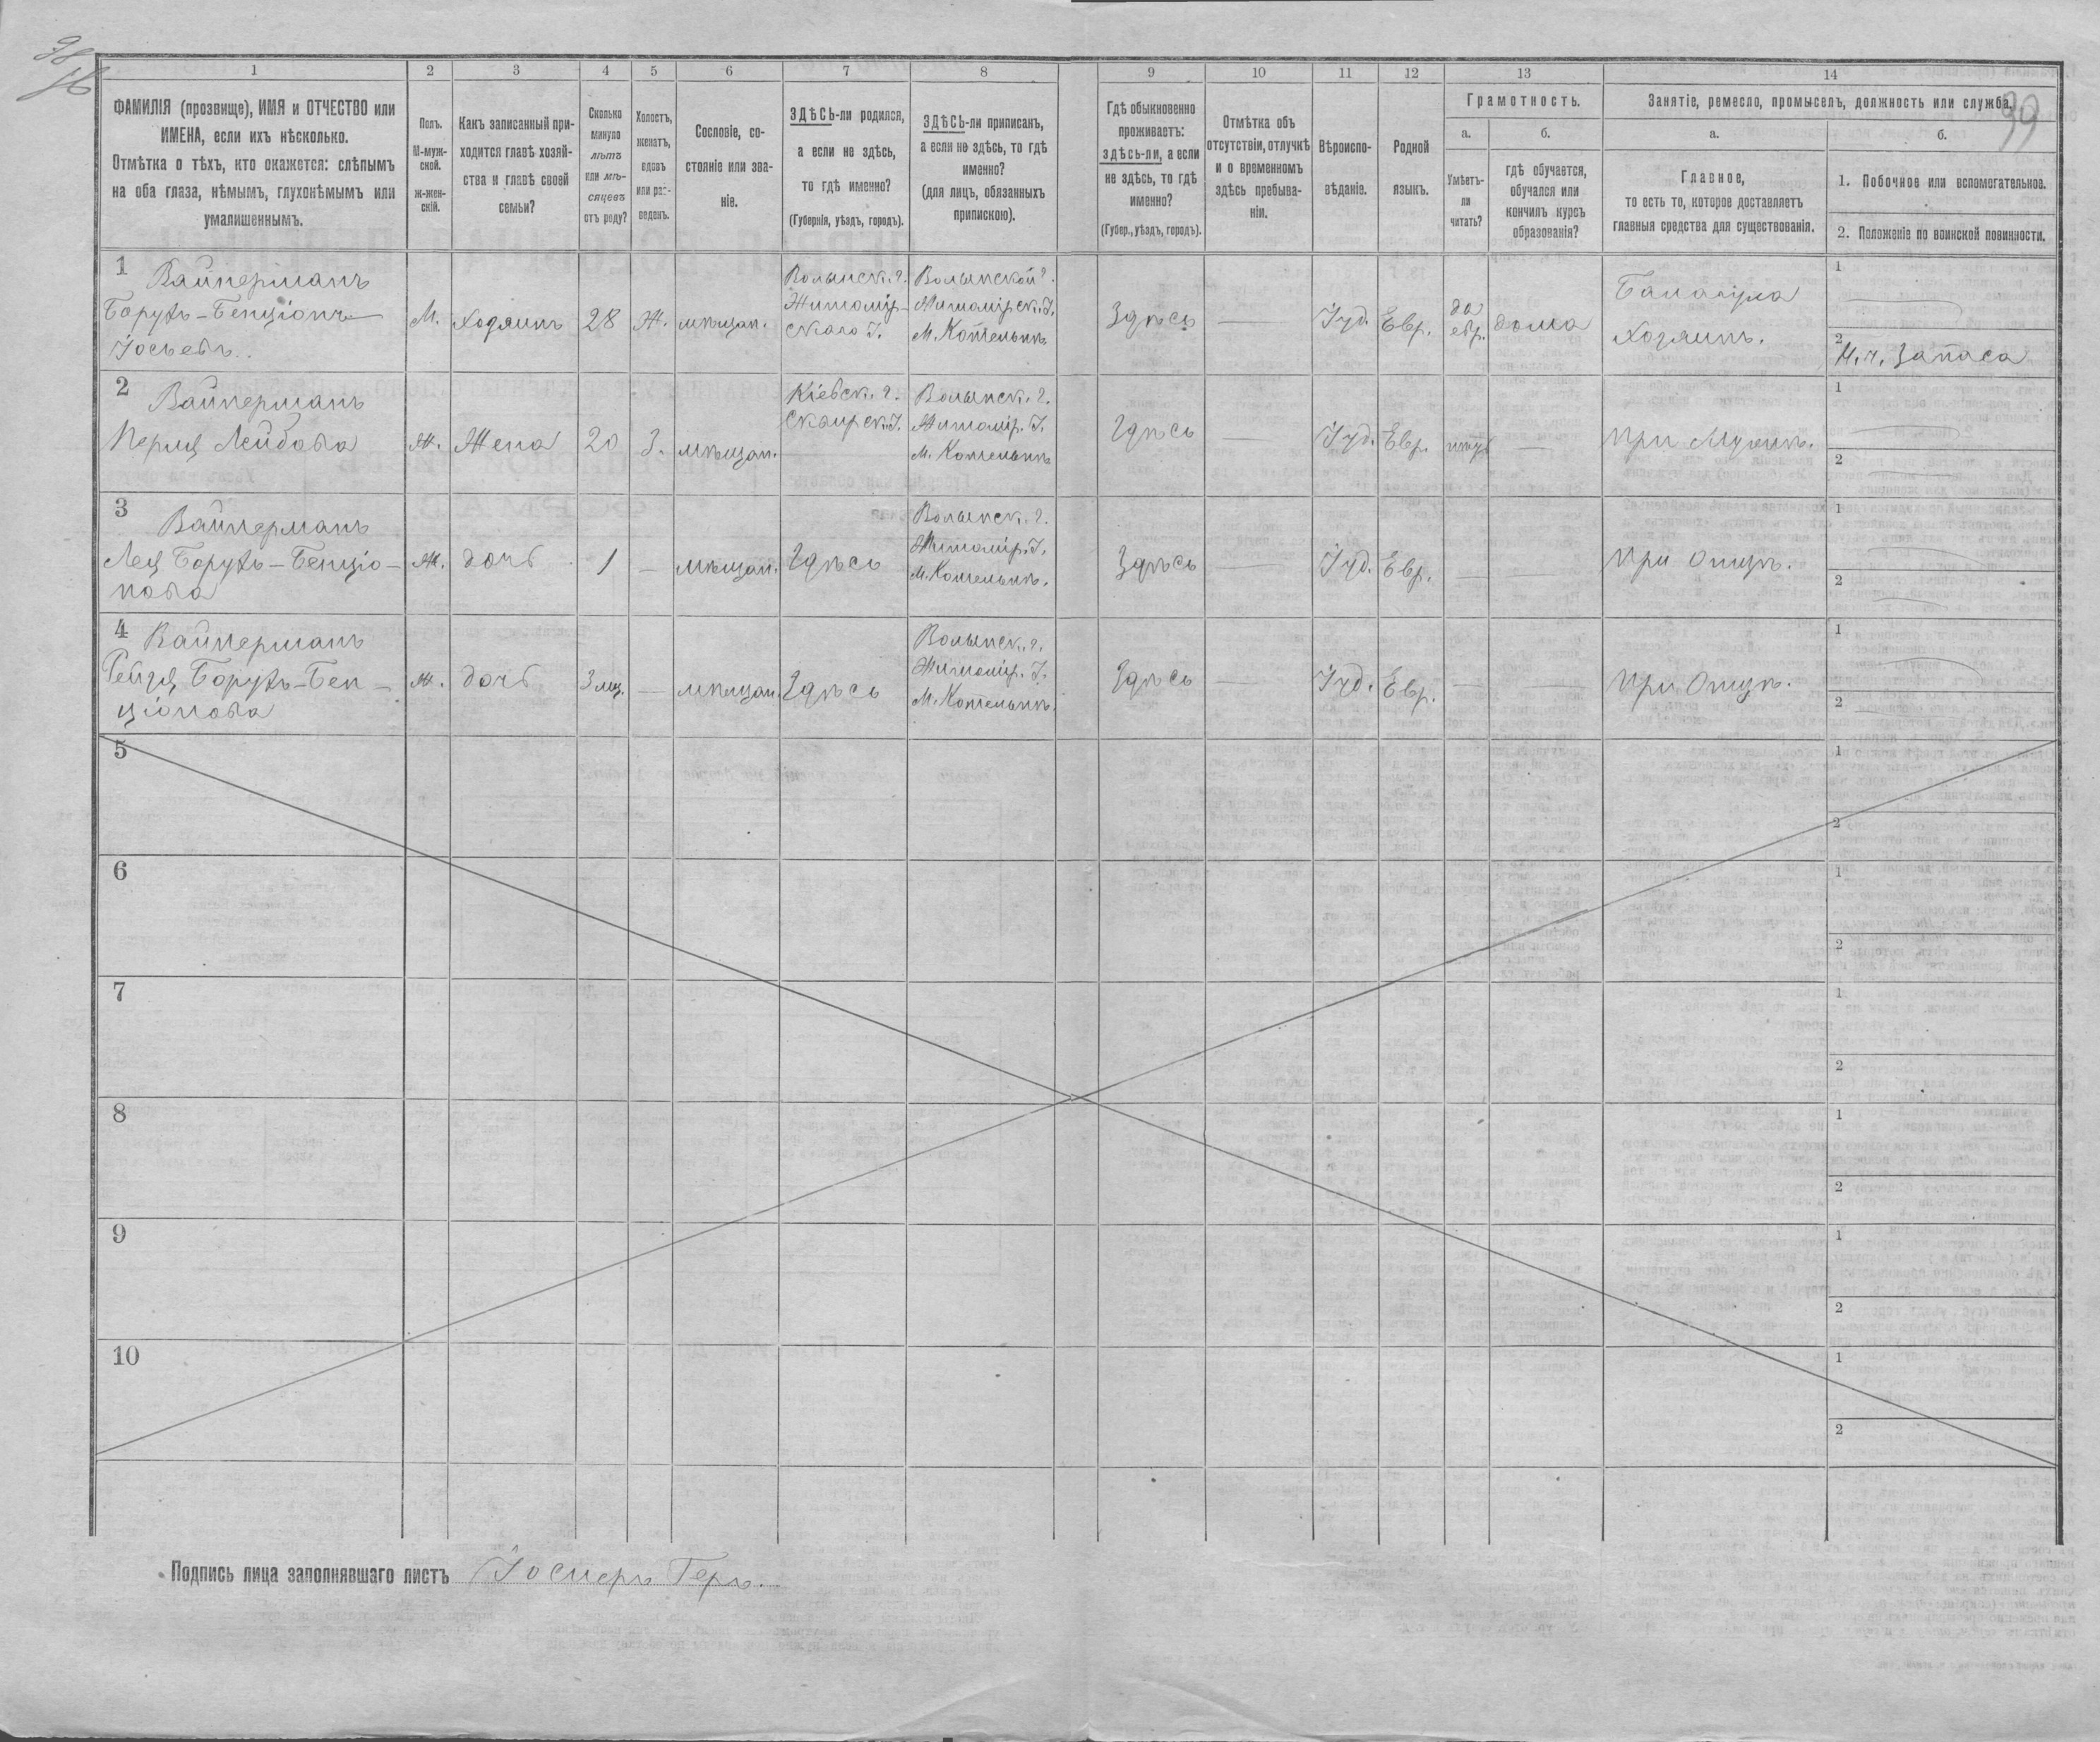 38
39
1 2 3 4 5 6 7 8 9 10 11 12 13 14
ФАМИЛІЯ (прозвище), ИМЯ и ОТЧЕСТВО или
ИМЕНА, если ихъ нѣсколько.
Отмѣтка о тѣхъ, кто окажется: слѣпымъ
на оба глаза, нѣмымъ, глухонѣмымъ или
умалишеннымъ.
Полъ.
М-муж-
ской.
ж-жен-
скій.
Какъ записанный при-
ходится главѣ хозяй-
ства и главѣ своей
семьи?
Сколько
минуло
лѣтъ
или мѣ-
сяцевъ
отъ роду?
Холостъ,
женатъ,
вдовъ
или раз-
веденъ.
Сословіе, со-
стояніе или зва-
ніе.
ЗДѢСЬ-ли родился,
а если не здѣсь,
то гдѣ именно?
(Губернія, уѣздъ, городъ).
ЗДѢСЬ-ли приписанъ,
а если не здѣсь, то гдѣ
именно?
(для лицъ, обязанныхъ
припискою).
Гдѣ обыкновенно
проживаетъ:
здѣсь-ли, а если
не здѣсь, то гдѣ
именно?
(Губер., уѣздъ, городъ).
Отмѣтка объ
отсутствіи, отлучкѣ
и о временномъ
здѣсь пребыва-
ніи.
Вѣроиспо-
вѣданіе.
Родной
языкъ.
Грамотность.
а.
б.
Умѣетъ-
ли
читать?
гдѣ обучается,
обучался или
кончилъ курсъ
образованія?
Занятіе, ремесло, промыселъ, должность или служба.
а.
б.
Главное,
то есть то, которое доставляетъ
главныя средства для существованія.
1. Побочное или вспомогательное.
2. Положеніе по воинской повинности.
1
Вайнерманъ
Борухъ-Бенціонъ
Іосьевъ.
М.
хозяинъ
28
Ж.
мѣщан.
Волынск. г.
Житомір-
скаго У.
Волынской г.
Житомірск. У.
М. Котельнѣ
Здѣсь
—
Іуд.
Евр.
да
евр.
дома
Балагула
хозяинъ.
1
2
Н. ч. запаса
2
Вайнерманъ
Перля Лейбова
Ж.
Жена
20
З.
мѣщан.
Кіевск. г.
Сквирск. У.
Волынск. г.
Житомір. У.
М. Котельнѣ
Здѣсь
—
Іуд.
Евр.
нѣтъ
—
при Мужѣ.
1
2
3
Вайнерманъ
Лея Борухъ-Бенціо-
нова
Ж.
дочь
1
—
мѣщан.
Здѣсь
Волынск. г.
Житомір. У.
М. Котельнѣ.
Здѣсь
—
Іуд.
Евр.
—
—
при Отцѣ.
1
2
4
Вайнерманъ
Рейзя Борухъ-Бен-
ціонова
Ж.
дочь
3 мц.
—
мѣщан.
Здѣсь
Волынск. г.
Житомір. У.
М. Котельнѣ.
Здѣсь
—
Іуд.
Евр.
—
—
при Отцѣ.
1
2
5
1
2
6
1
2
7
1
2
8
1
2
9
1
2
10
1
2
Подпись лица заполнявшаго листъ Іосиеръ Геръ.